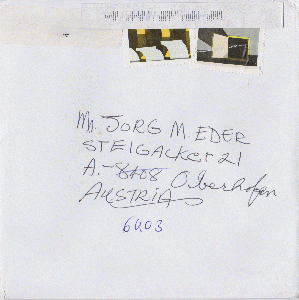 Mr. JORG MEDER
STEIGACKER 21
A.-8108 Oberhofen
AUSTRIA
6403